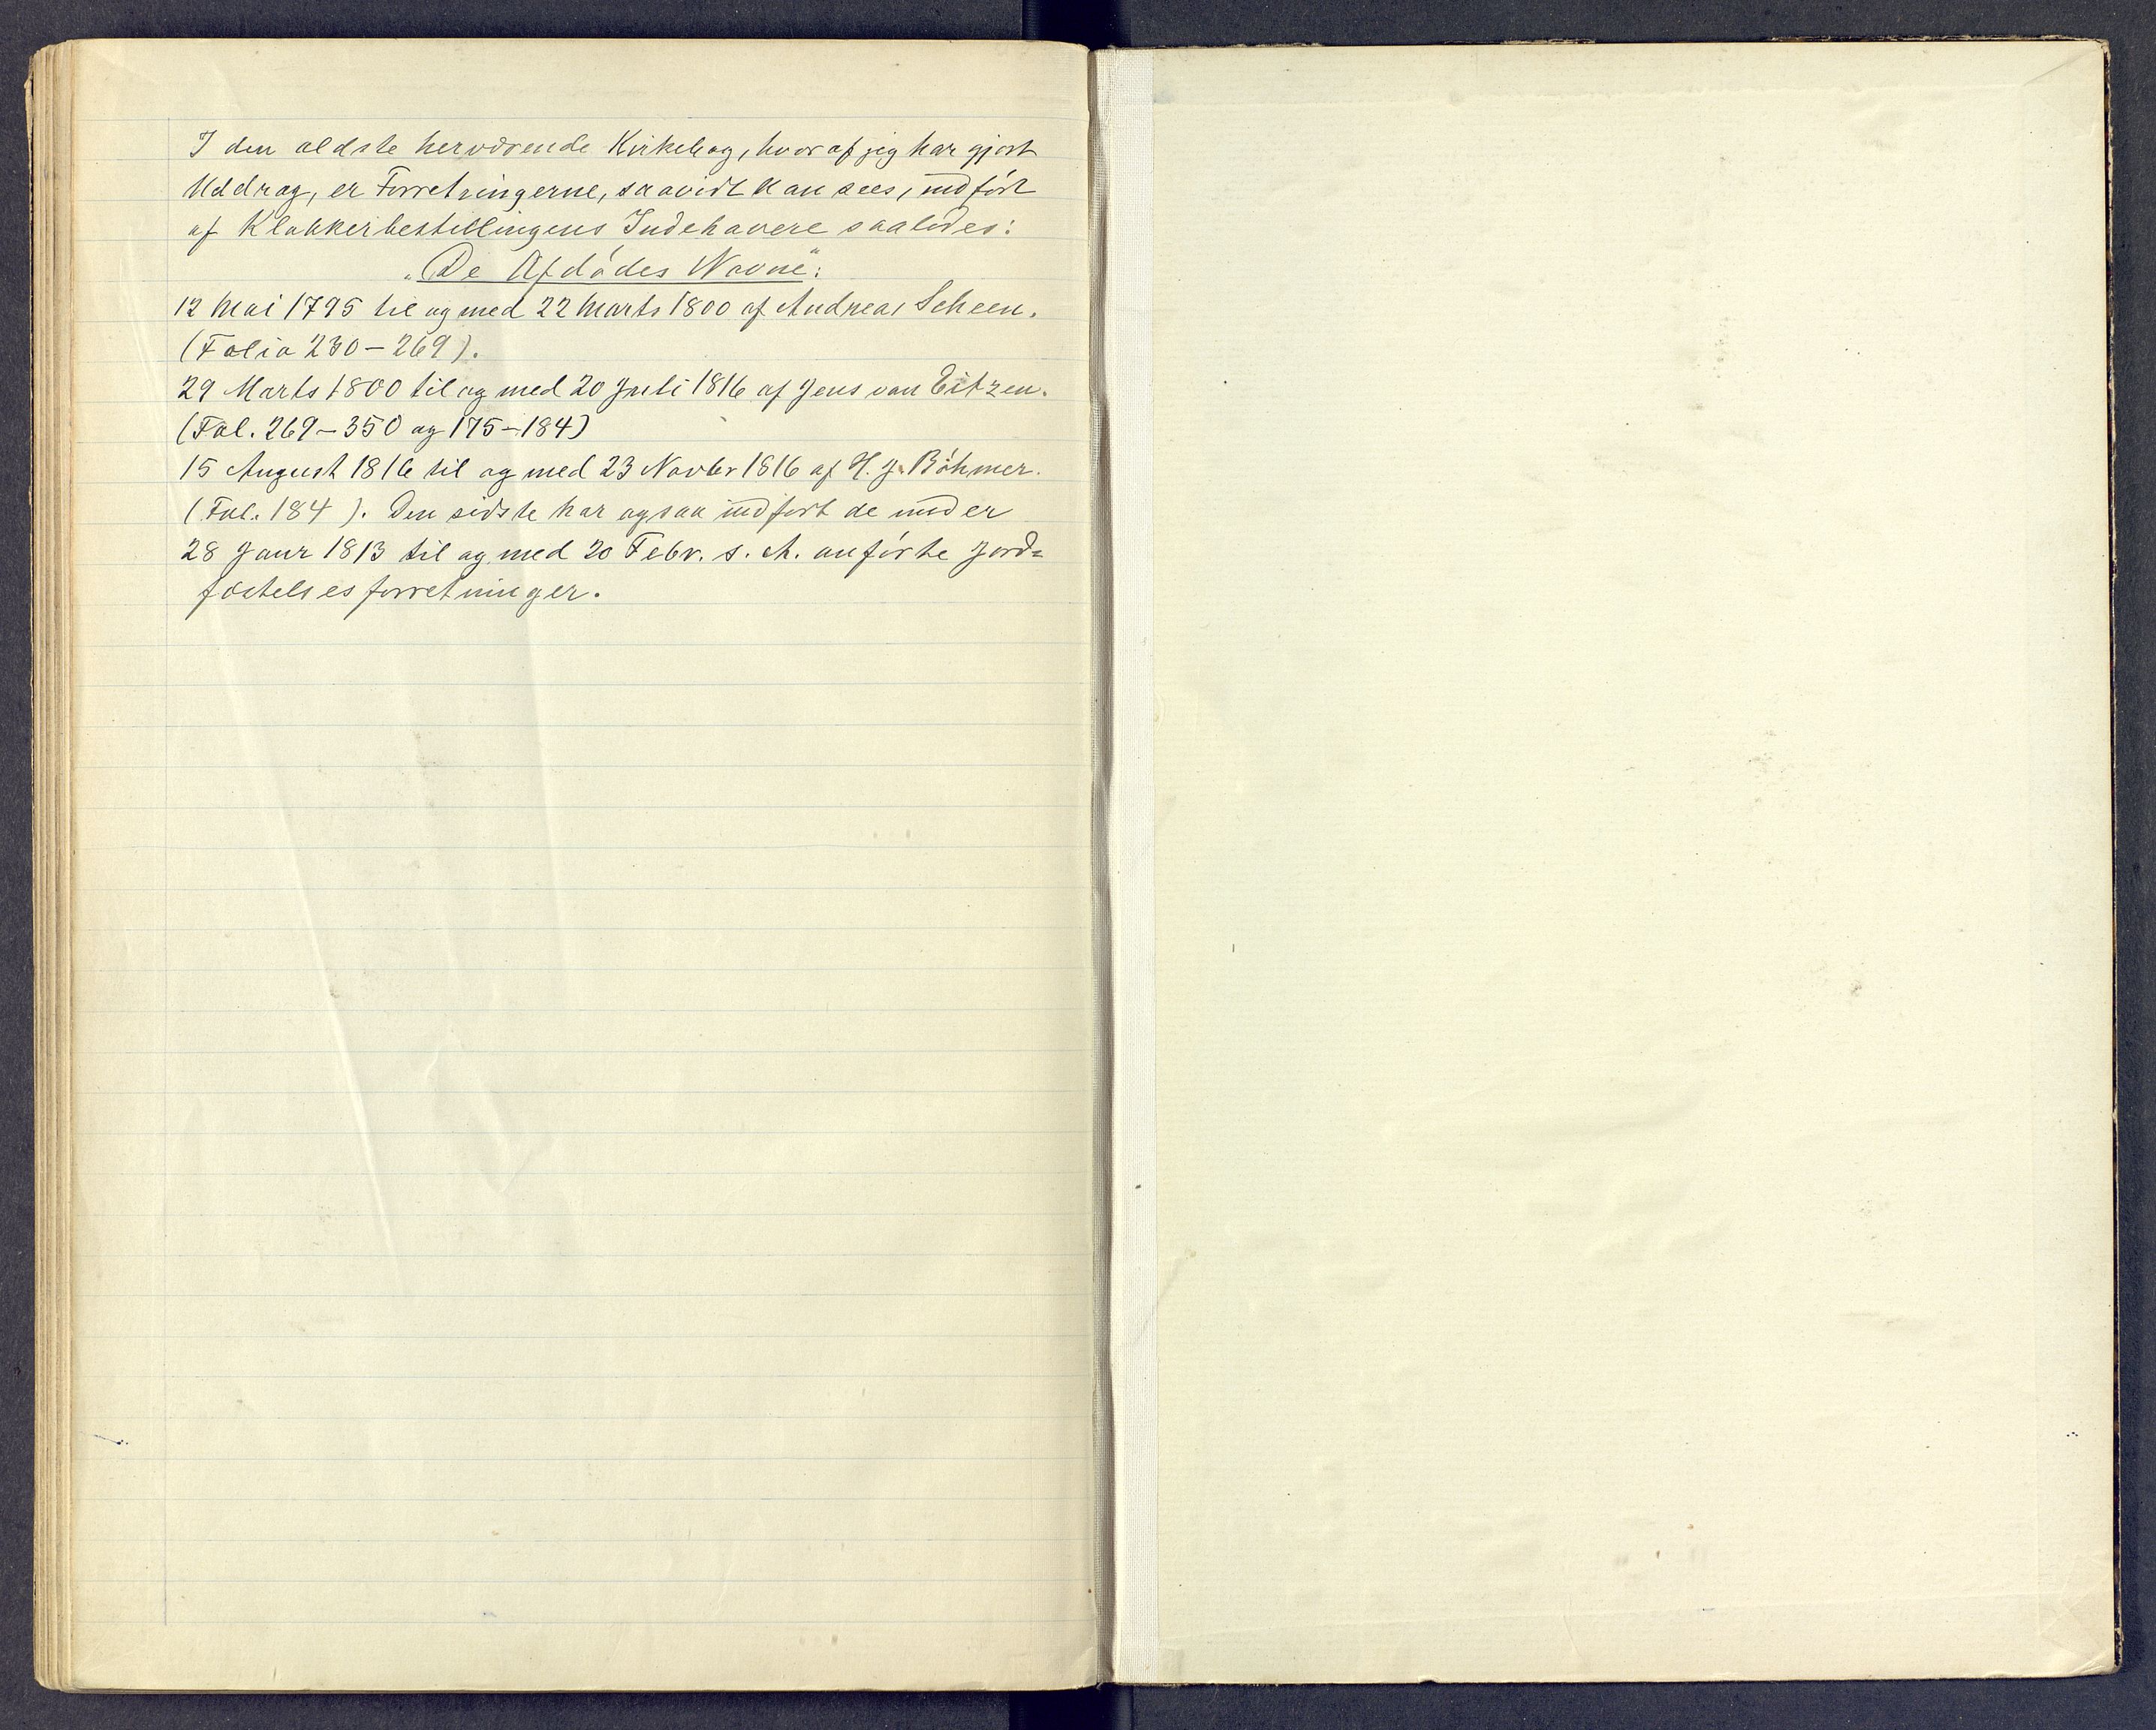 I den ældste herværende Kirkebog, hvoraf jeg har gjort
Uddrag, er Forretningerne, saavidt kan sees, indført
af Klokkerbestillingens Indehavere saaledes:
„De Afdødes Navne":
12 Mai 1795 til og med 22 Marts 1800 af Andreas Scheen.
(Folio 230-269).
29 Marts 1800 til og med 20 Juli 1816 af Jens van Eitzen.
(Fol. 269-350 og 175-184)
15 August 1816 til og med 23 Novbr 1816 af H. J. Böhmer.
(Fol. 184 ). Den sidste har ogsaa indført de under
28 Janr 1813 til og med 20 Febr. s. A. anførte Jord=
fæstelsesforretninger.